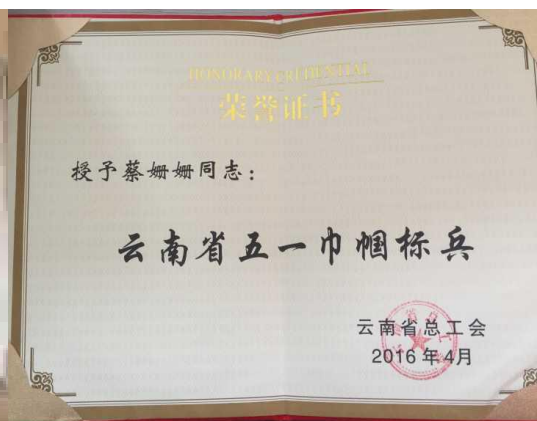 HONORARY CREDENTIAL
荣誉证书
授予蔡姗姗同志：
云南省五一巾帼标兵
云南省总工会
2016年4月